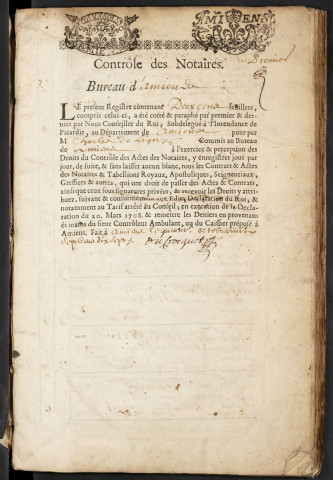 AMIENS
Premier
Contrôle des Notaires.
Bureau d'amiens
LE présent Registre contenant Deux cens feüillets,
compris celui-ci, a été cotté & paraphé par premier & der-
nier par Nous Conseiller du Roi, Subdelegué à l'Intendance de
Picardie, au Département de amiens pour par
M Commis au Bureau
de amiens à l'exercice & perception des
Droits du Contrôle des Actes des Notaires, y enregistrer jour par
jour, de suite, & sans laisser aucun blanc, tous les Contrats & Actes
des Notaires & Tabellions Royaux, Apostoliques, Seigneuriaux,
Greffiers & autres, qui ont droit de passer des Actes & Contrats,
ainsi que ceux sous signatures privées, & recevoir les Droits y attri-
buez, suivant & conformément aux Edits, Declaration du Roi, &
notamment au Tarif arrêté au Conseil, en execution de la Declara-
ration du 20. Mars 1708, & remettre les Deniers en provenans
és mains du sieur Contrôleur Ambulant, ou du Caissier préposé à
Amiens. Fait à amiens le octobre